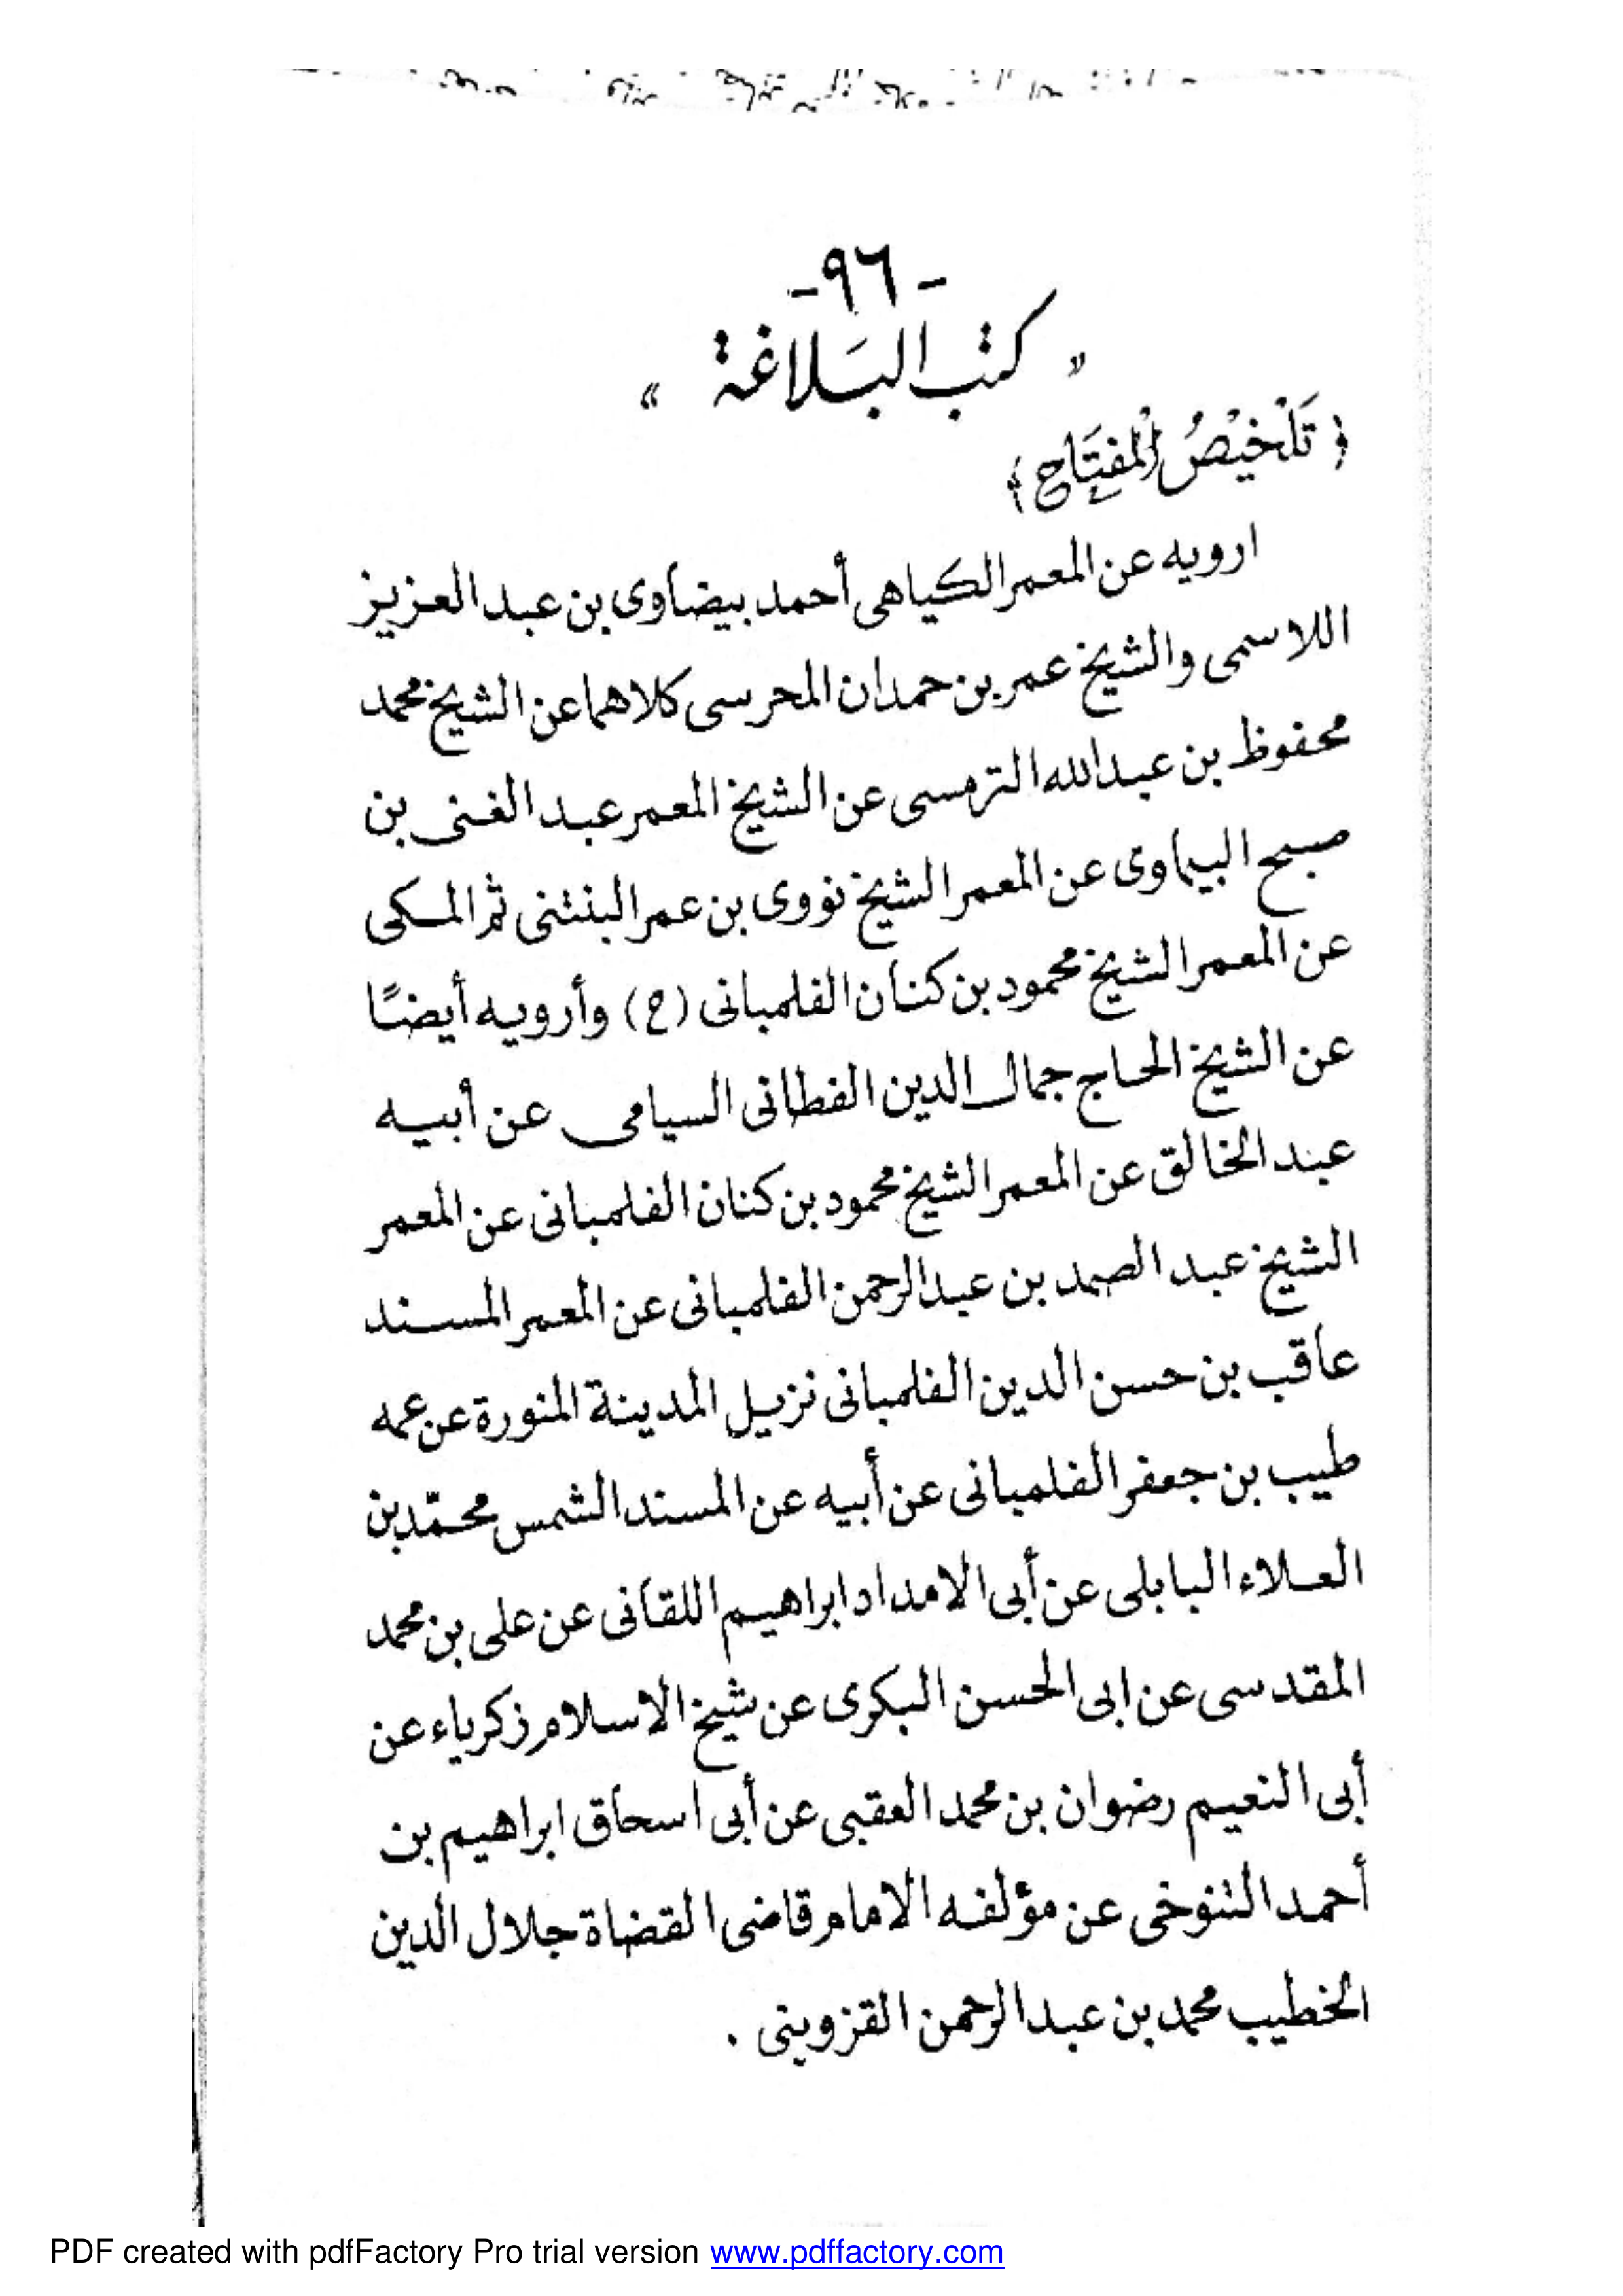 -٩٦-
« كتب البَلاغة »
﴿ تَلْخِيْصُ الْمِفتَاح ﴾
ارويه عن المعمر الكياهى أحمد بيضاوى بن عبد العزيز
اللاسمى والشيخ عمر بن حمدان المحرسى كلاهما عن الشيخ محمد
محفوظ بن عبدالله الترمسى عن الشيخ المعمر عبد الغنى بن
صبح البيماوى عن المعمر الشيخ نووى بن عمر البنتنى ثم المكى
عن المعمر الشيخ محمود بن كنان الفلمبانى (ح) وأرويه أيضًا
عن الشيخ الحاج جمال الدين الفطانى السيامى عن أبيه
عبد الخالق عن المعمر الشيخ محمود بن كنان الفلمبانى عن المعمر
الشيخ عبد الصمد بن عبد الرحمن الفلمبانى عن المعمر المسند
عاقب بن حسن الدين الفلمبانى نزيل المدينة المنورة عن عمه
طيب بن جعفر الفلمبانى عن أبيه عن المسند الشمس محمّد بن
العلاء البابلى عن أبى الامداد ابراهيم اللقانى عن على بن محمد
المقدسى عن ابى الحسن البكرى عن شيخ الاسلام زكرياء عن
أبى النعيم رضوان بن محمد العقبى عن أبى اسحاق ابراهيم بن
أحمد التنوخى عن مؤلفه الامام قاضى القضاة جلال الدين
الخطيب محمد بن عبد الرحمن القزوينى .
PDF created with pdfFactory Pro trial version www.pdffactory.com